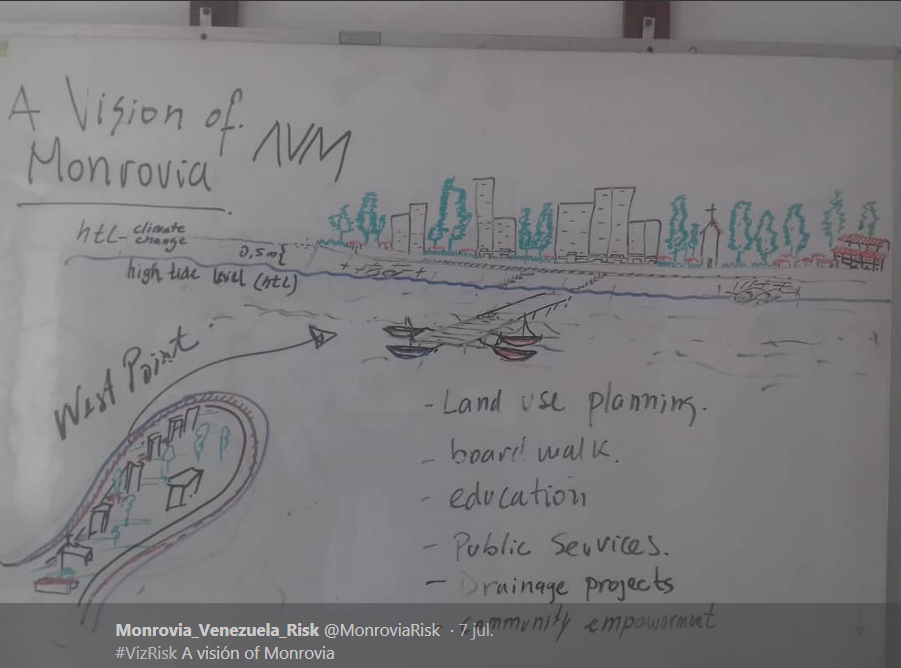 A Vision of
Monrovia
AVM
htL- climate
change
0,5m
high tide level (htl)
West Point
- Land use planning.
- board walk.
- education
- Public Services.
- Drainage projects
- community empowerment
Monrovia_Venezuela_Risk @MonroviaRisk · 7 jul.
#VizRisk A visión of Monrovia